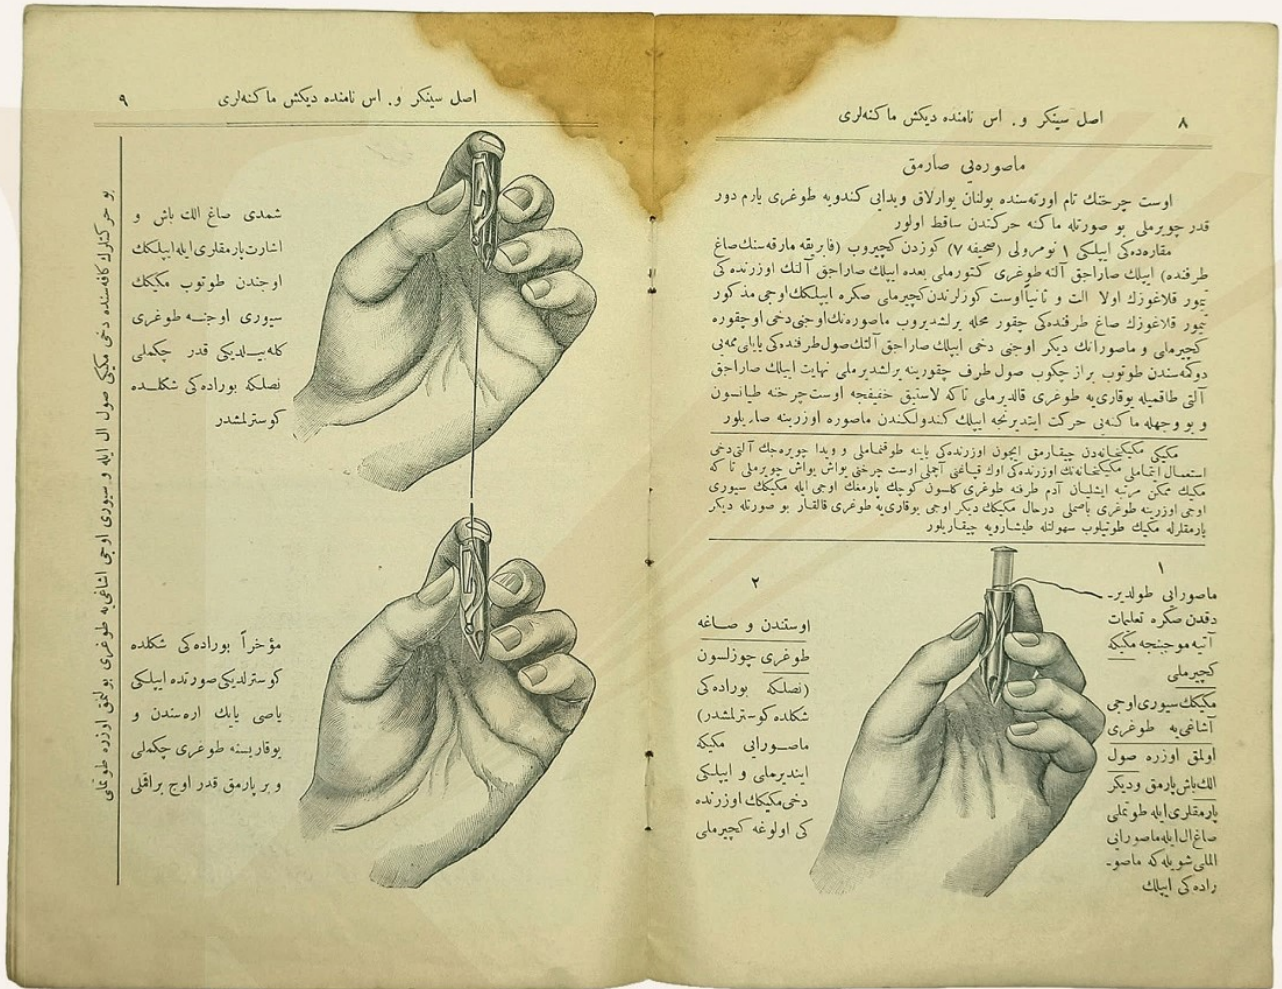 ٨
اصل سینکر و. اس نامنده دیکش ماکنه‌لری
ماصوره‌یی صارمق
اوست چرخنك تام اورته‌سنده بولنان یوارلاق ویدایی کندویه طوغری یارم دور
قدر چویرملی بو صورتله ماکنه حرکتدن ساقط اولور
مقاره‌ده‌کی ایپلکی ١ نومرولی (صحیفه ٧) کوزدن کچیروب (فابریقه مارقه‌سنك صاغ
طرفنده) ایپلك صاراجق آلته طوغری کتورملی بعده ایپلك صاراجق آلتك اوزرنده‌کی
تیمور قلاغوزك اولا الت و ثانیاً اوست کوزلرندن کچیرملی صکره ایپلکك اوجی مذکور
تیمور قلاغوزك صاغ طرفنده‌کی چقور محله یرلشدیروب ماصوره‌نك اوجنی دخی او چقوره
کچیرملی و ماصورانك دیکر اوجنی دخی ایپلك صاراجق آلتك صول طرفنده‌کی یایلی ممه‌یی
دوکه‌سندن طوتوب براز چکوب صول طرف چقورینه یرلشدیرملی نهایت ایپلك صاراجق
آلتی طاقمیله یوقاری‌یه طوغری قالدیرملی تاکه لاستیق خفیفجه اوست چرخنه طیانسون
و بو وجهله ماکنه‌یی حرکت ایتدیرنجه ایپلك کندولکندن ماصوره اوزرینه صاریلور
مکیکی مکیکخانه‌دن چیقارمق ایچون اوزرنده‌کی یاینه طوقنماملی و ویدا چویره‌جك آلتی دخی
استعمال ایتماملی مکیکخانه‌نك اوزرنده‌کی اوك قپاغنی آچملی اوست چرخنی یواش یواش چویرملی تا که
مکیك ممکن مرتبه ایشلیان آدم طرفنه طوغری کلسون کوچك پارمغك اوجی ایله مکیکك سیوری
اوجی اوزرینه طوغری باصملی درحال مکیکك دیکر اوجی یوقاری‌یه طوغری قالقار بو صورتله دیکر
پارمقلرله مکیك طوتیلوب سهولتله طیشارویه چیقاریلور
١
ماصورایی طولدیر-
دقدن صکره تعلیمات
آتیه موجبنجه مکیکه
کچیرملی
مکیکك سیوری اوجی
آشاغی‌یه طوغری
اولمق اوزره صول
الك باش پارمق و دیکر
پارمقلری ایله طوتملی
صاغ ال ایله ماصورایی
الملی شویله‌که ماصو-
راده‌کی ایپلك
٢
اوستندن و صاغه
طوغری چوزلسون
(نصلکه بوراده‌کی
شکلده کوسترلمشدر)
ماصورایی مکیکه
ایندیرملی و ایپلکی
دخی مکیکك اوزرنده
کی اولوغه کچیرملی
٩
اصل سینکر و. اس نامنده دیکش ماکنه‌لری
شمدی صاغ الك باش و
اشارت پارمقلری ایله ایپلکك
اوجندن طوتوب مکیکك
سیوری اوجنه طوغری
کله‌بیلدیکی قدر چکملی
نصلکه بوراده‌کی شکلده
کوسترلمشدر
مؤخراً بوراده‌کی شکلده
کوسترلدیکی صورتده ایپلکی
یاصی یایك اره‌سندن و
یوقاریسنه طوغری چکملی
و بر پارمق قدر اوج براقملی
بو حرکتلرك کافه‌سنده دخی مکیکی صول ال ایله و سیوری اوجی اشاغی‌یه طوغری بولنمق اوزره طوتملی